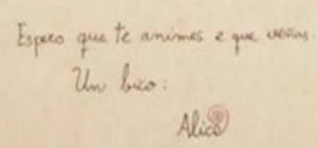 Espero que te animes e que veñas.
Un bico:
Alice